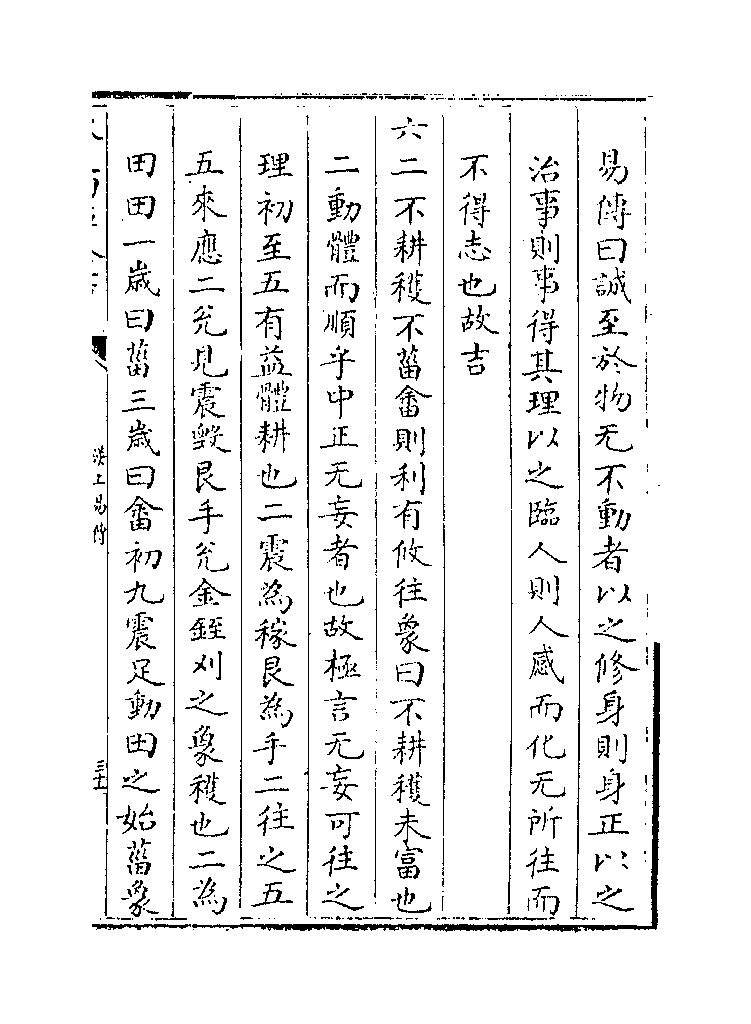 易傳曰誠至於物无不動者以之修身則身正以之
治事則事得其理以之臨人則人感而化无所往而
不得志也故吉
六二不耕穫不菑畬則利有攸往象曰不耕穫未富也
二動體而順乎中正无妄者也故極言无妄可往之
理初至五有益體耕也二震為稼艮為手二往之五
五來應二兊見震毀艮手兊金銍刈之象穫也二為
田田一歲曰菑三歲曰畬初九震足動田之始菑象
漢上易傳